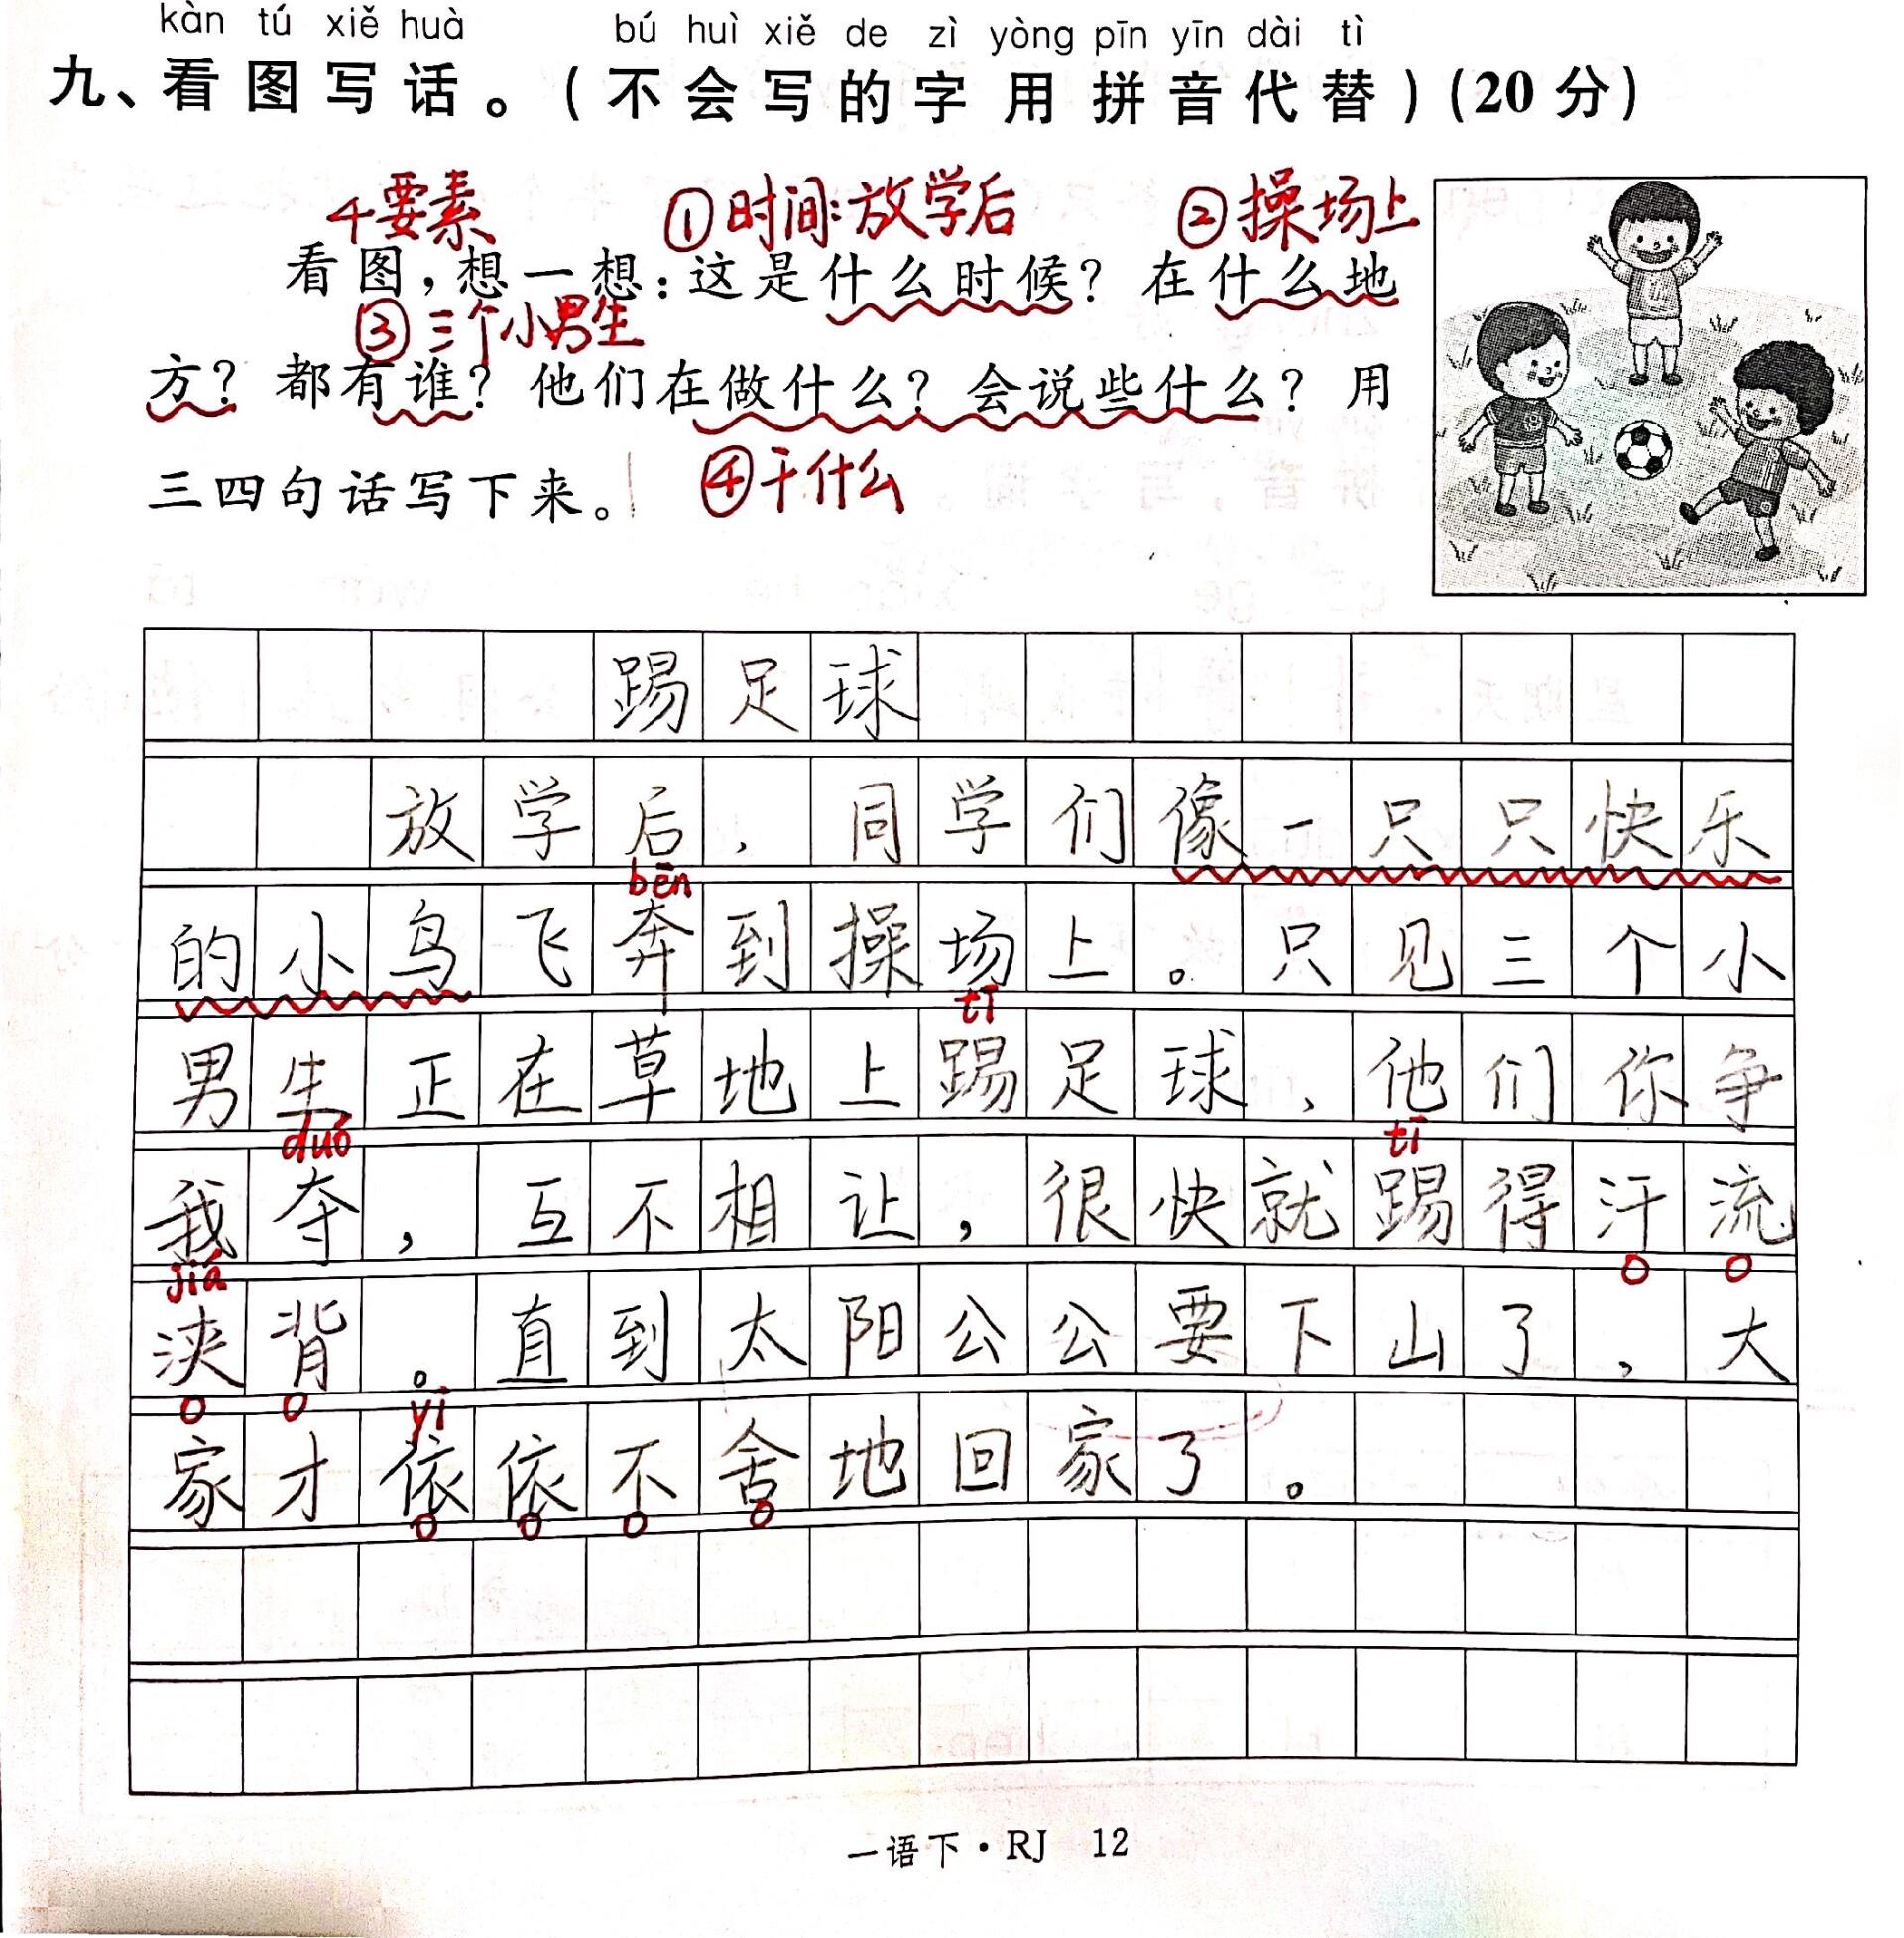 kàn tú xiě huà bú huì xiě de zì yòng pīn yīn dài tì
九、看图写话。(不会写的字用拼音代替)(20分)
4要素 ①时间:放学后 ②操场上
看图,想一想:这是什么时候?在什么地
③三个小男生
方?都有谁?他们在做什么?会说些什么?用
三四句话写下来。 ④干什么
踢足球
放学后,同学们像一只只快乐
bēn
的小鸟飞奔到操场上。只见三个小
tī
男生正在草地上踢足球,他们你争
duó tī
我夺,互不相让,很快就踢得汗流
jiā
浃背。直到太阳公公要下山了,大
yī
家才依依不舍地回家了。
一语下·RJ 12